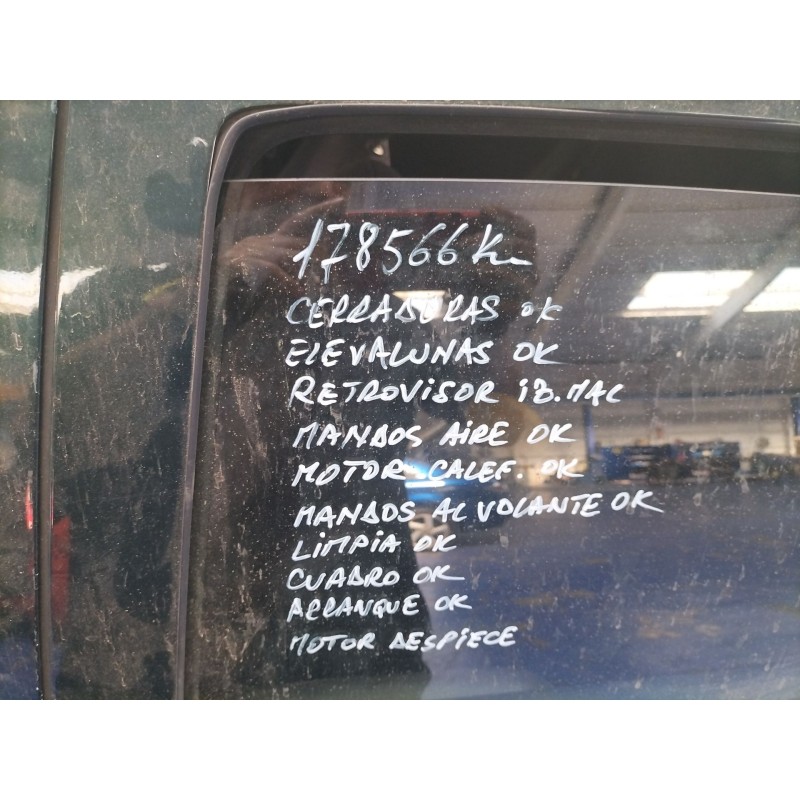 178566 Km
CERRADURAS OK
ELEVALUNAS OK
RETROVISOR IZ. MAL
MANDOS AIRE OK
MOTOR CALEF. OK
MANDOS AL VOLANTE OK
LIMPIA OK
CUADRO OK
ARRANQUE OK
MOTOR DESPIECE